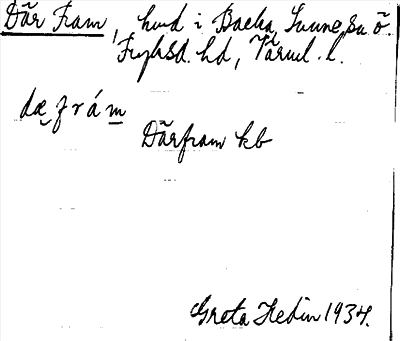 Där Fram, hmd i Backa, Sunne sn ö.
Fryksd. hd, Värml. l.
dæ̨ fr á m
Därfram kb
Greta Hedin 1934.